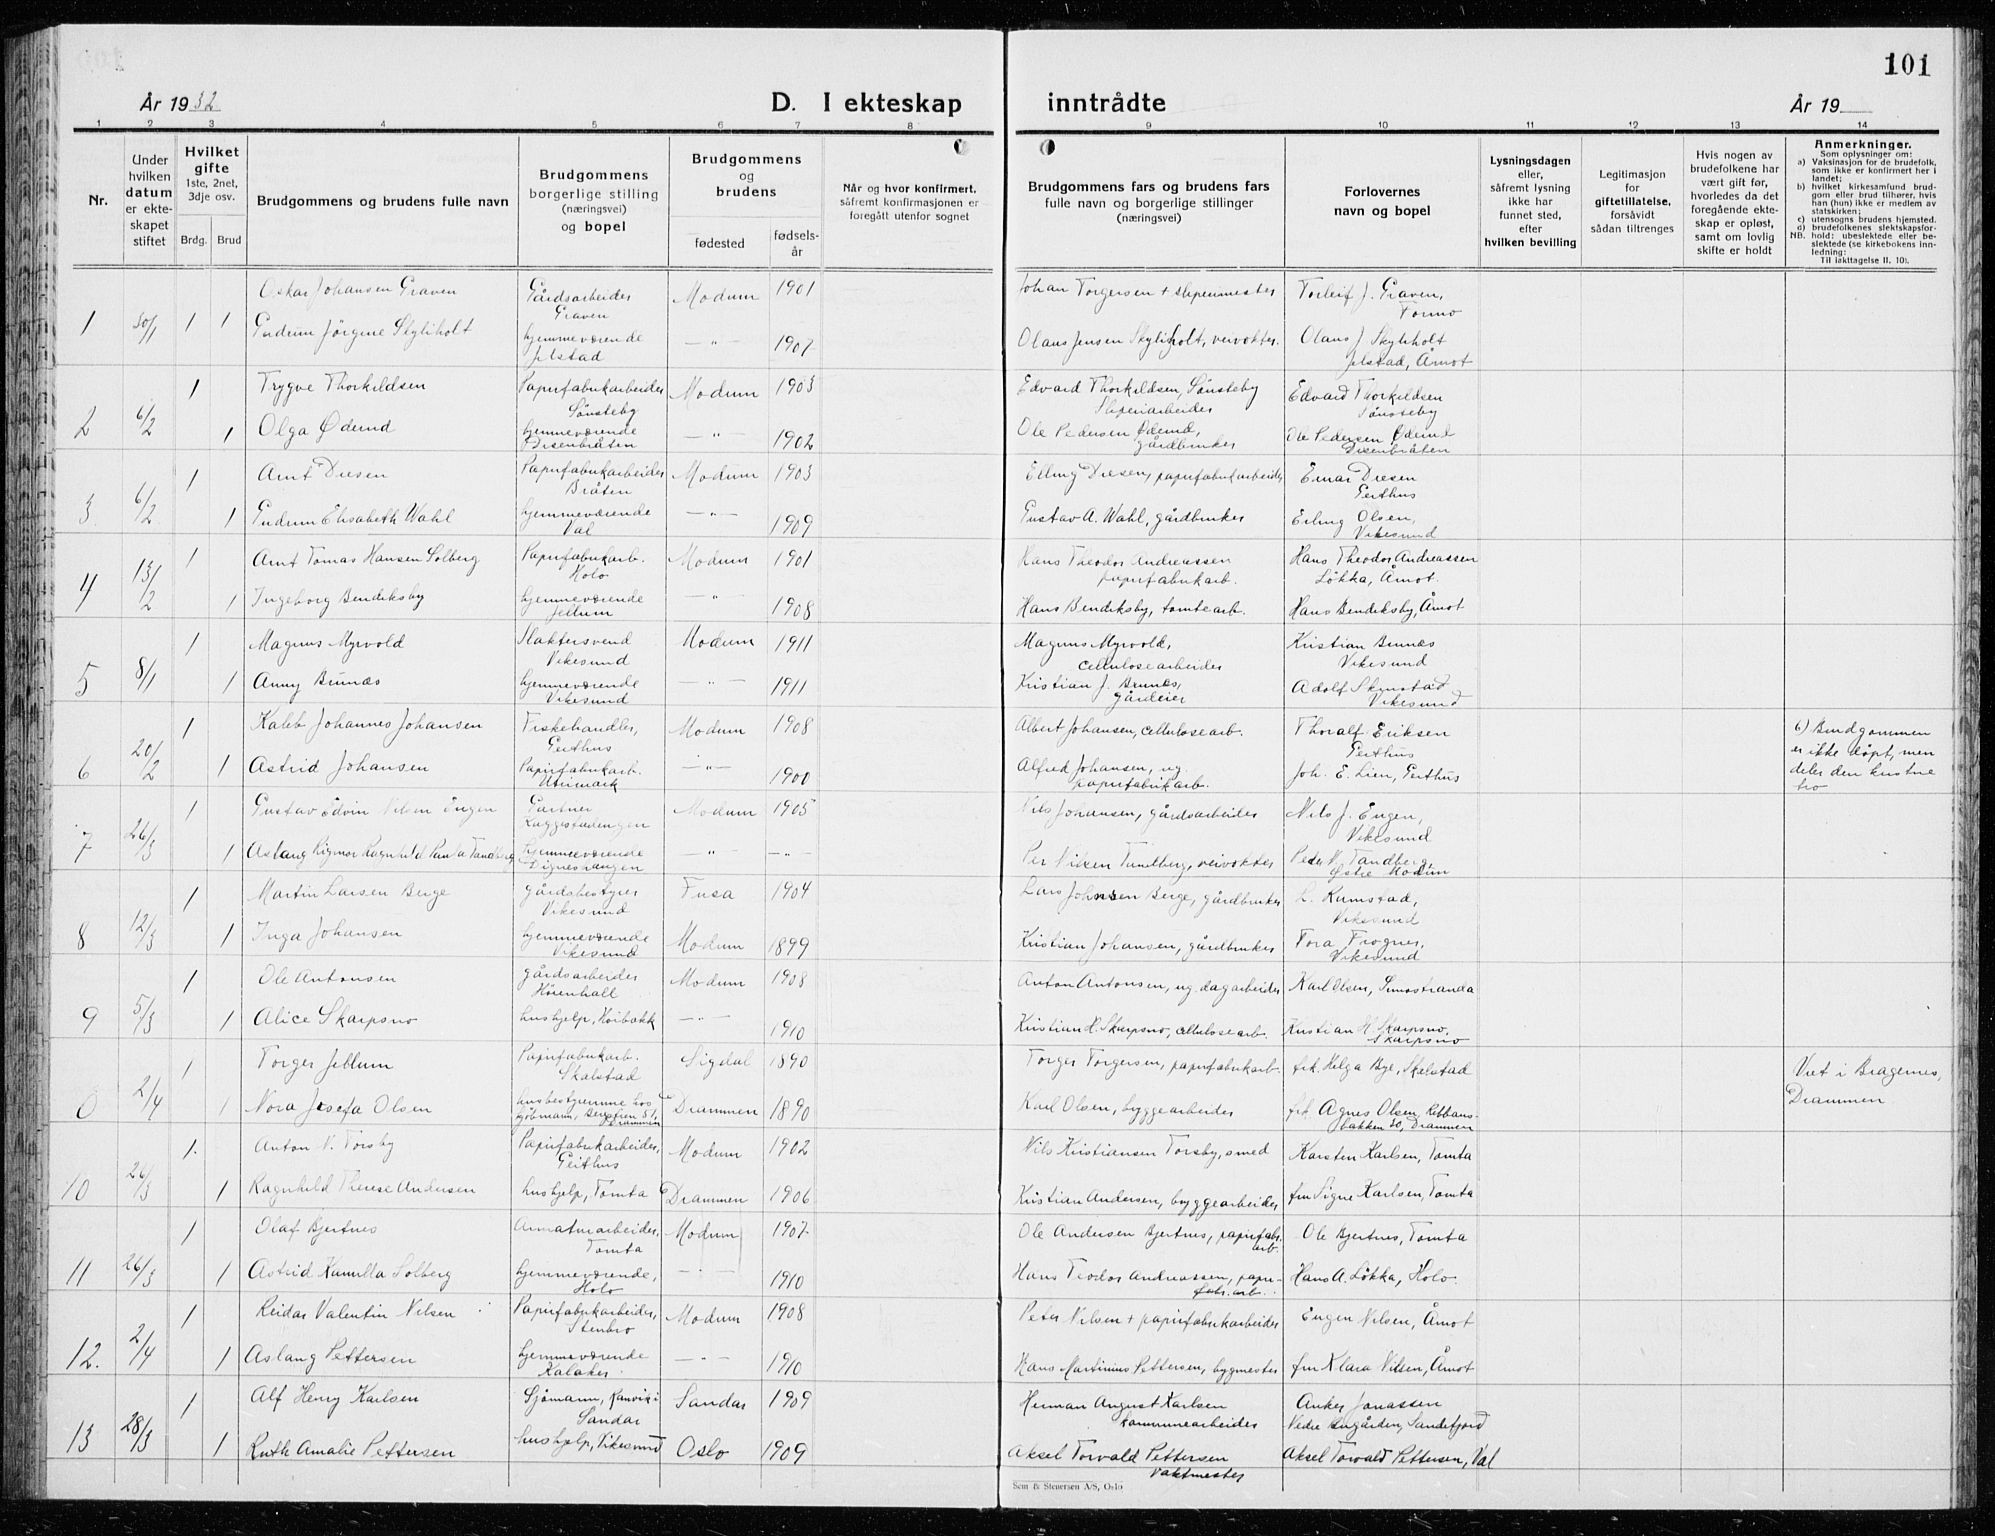 101
År 1932
D. I ekteskap inntrådte
År 19
1 2 3 4 5 6 7 8 9 10 11 12 13 14
Nr.
Under hvilken datum er ekteskapet stiftet
Hvilket gifte
1ste, 2net, 3dje osv.
Brdg. Brud
Brudgommens og brudens fulle navn
Brudgommens borgerlige stilling (næringsvei) og bopel
Brudgommens og brudens
fødested
fødselsår
Når og hvor konfirmert, såfremt konfirmasjonen er foregått utenfor sognet
Brudgommens fars og brudens fars fulle navn og borgerlige stillinger (næringsvei)
Forlovernes navn og bopel
Lysningsdagen eller, såfremt lysning ikke har funnet sted, efter hvilken bevilling
Legitimasjon for giftetillatelse, forsåvidt sådan tiltrenges
Hvis nogen av brudefolkene har vært gift før, hvorledes da det foregående ekteskap er opløst, samt om lovlig skifte er holdt
Anmerkninger.
Som oplysninger om:
a) Vaksinasjon for de brudefolk, som ikke er konfirmert her i landet;
b) hvilket kirkesamfund brudgom eller brud tilhører, hvis han (hun) ikke er medlem av statskirken;
c) utensogns brudens hjemsted.
d) brudefolkenes slektskapsforhold: ubeslektede eller beslektede (se kirkebokens innledning:
NB.
Til iakttagelse II. 10).
1 30/1 1 1 Oskar Johansen Graven Gårdsarbeider Graven Modum 1901 Johan Torgersen + slipermester Torleif J. Graven, Formo
Gudrun Jörgine Skyliholt hjemmeværende Jelstad —"— 1907 Olaus Jensen Skyliholt, veivokter. Olaus J Skyliholt Jelstad, Åmot
2 6/2 1 Trygve Thorkildsen Papirfabrikarbeider Sönsteby Modum 1903 Edvard Thorkildsen, Sönsteby Sliperiarbeider Edvard Thorkildsen Sönsteby
1 Olga Ødemd hjemmeværende Disenbråten —"— 1902 Ole Pedersen Ødemd, gårdbruker Ole Pedersen Ødemd Disenbråten
3 6/2 1 Arnt Diesen Papirfabrikarbeider Bråten Modum 1903 Elling Diesen, papirfabrikarbeider Einar Diesen Geithus
1 Gudrun Elisabeth Wahl hjemmeværende Val —"— 1909 Gustav A. Wahl, gårdbruker Erling Olsen, Vikesund
4 13/2 1 Arnt Tomas Hansen Solberg Papirfabrikarb. Holo Modum 1901 Hans Theodor Andreassen papirfabrikarb. Hans Theodor Andreassen Løkka, Åmot.
1 Ingeborg Bendiksby hjemmeværende Jellum —"— 1908 Hans Bendiksby, tomtearb. Hans Bendiksby, Åmot
5 8/1 1 Magnus Myrvold Slaktersvend Vikesund Modum 1911 Magnus Myrvold, cellulosearbeider Kristian Brunæs Vikesund
1 Anny Brunæs hjemmeværende Vikesund —"— 1911 Kristian J. Brunæs, Gårdeier Adolf Skynstad Vikesund
6 20/2 1 Kaleb Johannes Johansen Fiskehandler, Geithus Modum 1908 Albert Johansen, cellulosearb. Thoralf Eriksen Geithus 6) Brudgommen er ikke døpt, men deler den kristne tro
1 Astrid Johansen Papirfabrikarb. Utrimark —"— 1900 Alfred Johansen, ug. papirfabrikarb. Joh. E. Lien, Geithus
7 26/3 1 Gustav Edvin Nilsen Engen Gartner Modum 1905 Nils Johansen, gårdsarbeider Nils J. Engen, Vikesund
1 Aslaug Rigmor Ragnhild Paula Tandberg hjemmeværende Digneshaugen —"— —"— Per Nilsen Tandberg, veivokter Peder N. Tandberg, Østre Modum
8 12/3 1 Martin Larsen Berge gårdsbestyrer Vikesund Fusa 1904 Lars Johnsen Berge, gårdbruker L. Rumstad, Vikesund
1 Inga Johansen hjemmeværende Vikesund Modum 1899 Kristian Johansen, gårdbruker Tora Frogner, Vikesund
9 5/3 1 Ole Antonsen gårdsarbeider Hörenhall Modum 1908 Anton Antonsen, ug. dagarbeider Karl Olsen, Simostranda
1 Alice Skarpsno hushjelp, Höibakk —"— 1910 Kristian H. Skarpsno, cellulosearb. Kristian H. Skarpsno, Skarpsno
0 2/4 1 Torger Jellum Papirfabrikarb. Skalstad Sigdal 1890 Torger Torgersen, papirfabrikarb. frk. Helga Bye, Skalstad Viet i Bragernes, Drammen
1 Nora Josefa Olsen husbestyrerinne hos kjøbmann, Bergstien 51, Drammen Drammen 1890 Karl Olsen, byggearbeider frk. Agnes Olsen, Rebbansbakken 20, Drammen
10 26/3 1. Anton N. Torsby Papirfabrikarbeider, Geithus Modum 1902 Nils Kristiansen Torsby, smed Karsten Karlsen, Tomta
1 Ragnhild Therese Andersen hushjelp, Tomta Drammen 1906 Kristian Andersen, byggearbeider fru Signe Karlsen, Tomta
11 26/3 1 Olaf Bjertnes Armaturarbeider, Tomta Modum 1907 Ole Andersen Bjertnes, papirfabr. arb. Ole Bjertnes, Tomta
1 Astrid Kamilla Solberg hjemmeværende, Holo —"— 1910 Hans Teodor Andreassen, papirfabr. arb. Hans A. Løkka, Holo.
12. 2/4 1 Reidar Valentin Nilsen Papirfabrikarbeider, Stenbro Modum 1908 Peter Nilsen + papirfabrikarbeider Eugen Nilsen, Åmot
1 Aslaug Pettersen hjemmeværende Kalaker —"— 1910 Hans Martinius Pettersen, bygmester fru Klara Nilsen, Åmot
13 28/3 1 Alf Henry Karlsen Sjömann, Ranvik i Sandar Sandar 1909 Herman August Karlsen kommunearbeider Anker Jonassen Nedre Sandefjord
1 Ruth Amalie Pettersen hushjelp, Vikesund Oslo 1909 Aksel Torvald Pettersen vaktmester Aksel Torvald Pettersen, Val
Sem & Stenersen A/S, Oslo